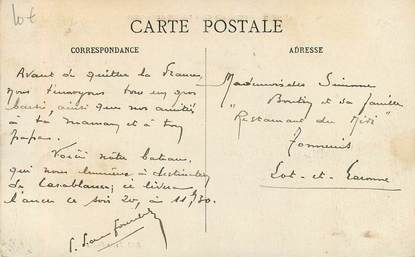 lot
CARTE POSTALE
CORRESPONDANCE
ADRESSE
Avant de quitter la France,
nous t'envoyons tous un gros
baiser, ainsi que nos amitiés
à ta maman et à ton
papa.
Voici notre bateau,
qui nous emmène à destination
de Casablanca; ce
ce soir 20, à 11h30.
Mademoiselle Simone
Boutin et sa famille
"Restaurant du Midi"
Tonneins
Lot-et-Garonne